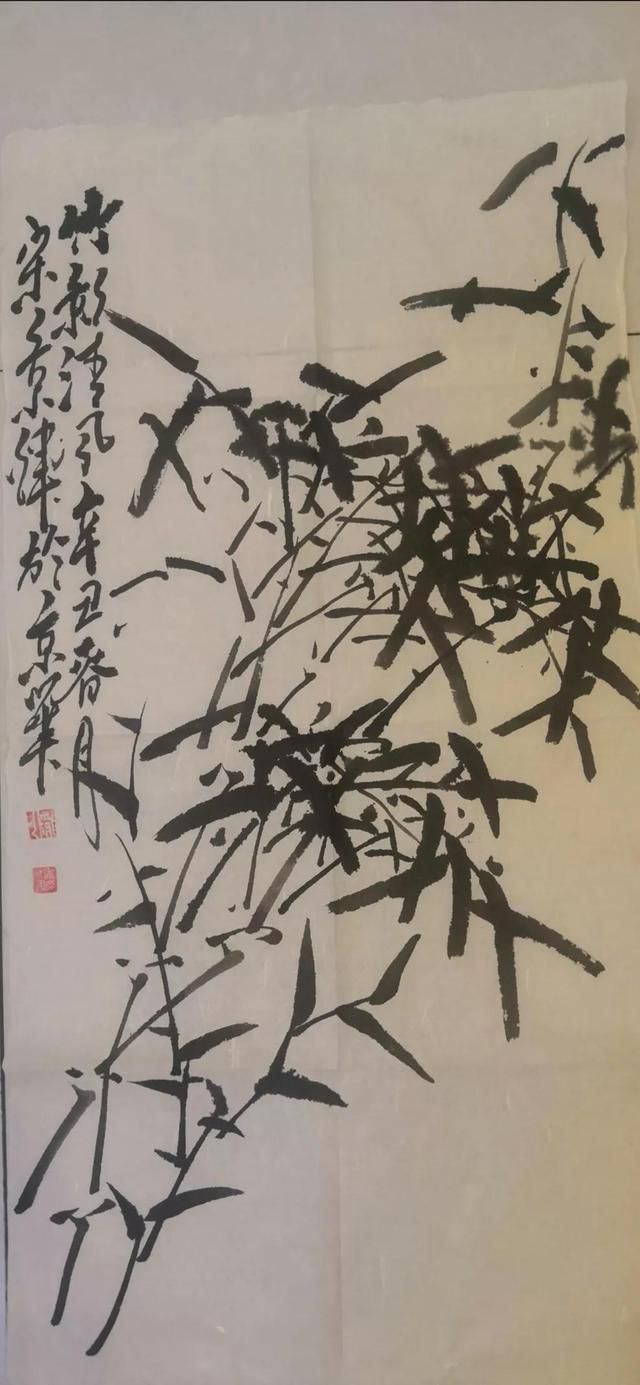 竹影清风辛丑春月
宋京津於京华